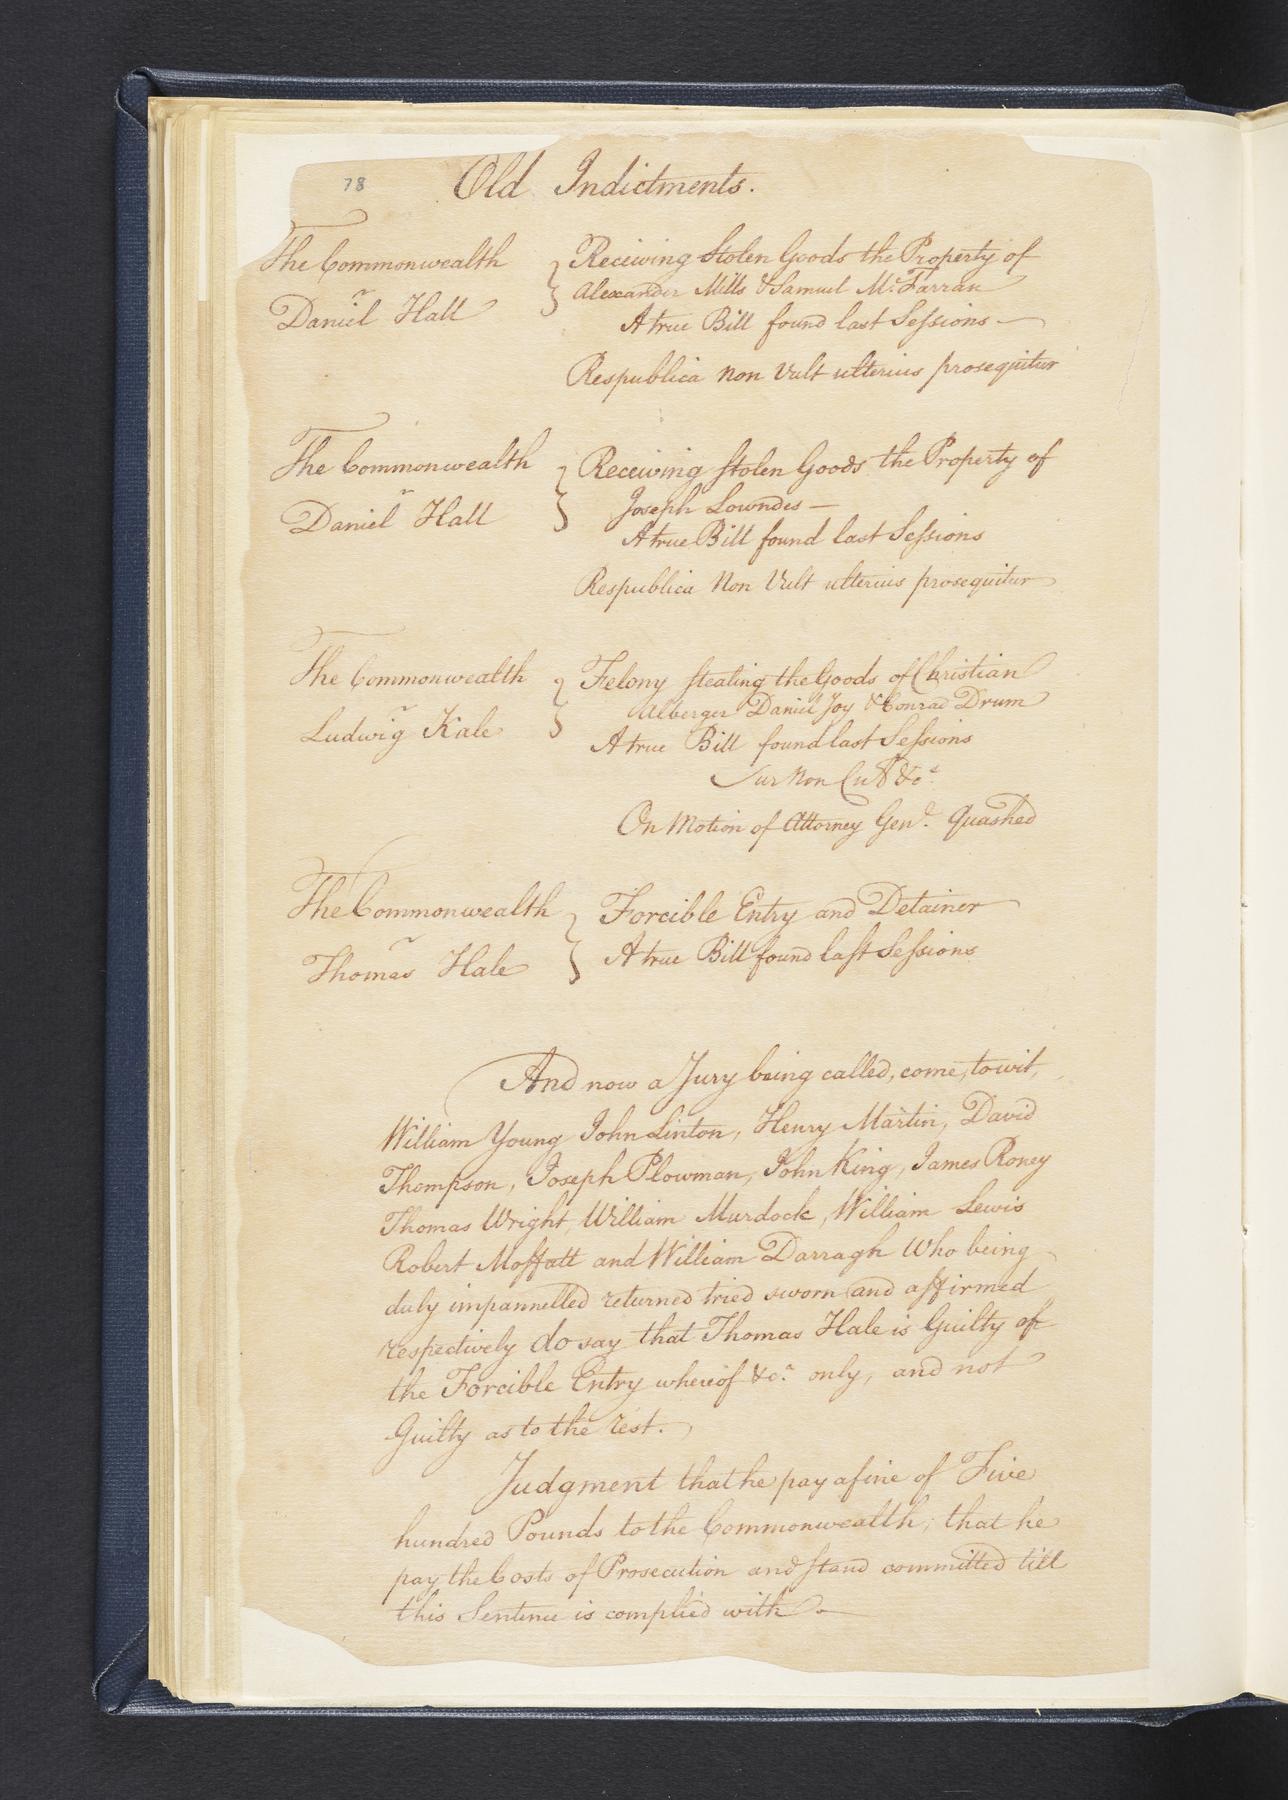 78
Old Indictments.
The Commonwealth
vr
Daniel Hall
Receiving Stolen Goods the Property of
Alexander Mills & Samuel McFarran
A true Bill found last Sessions —
Respublica non Vult ulterius prosequitur
The Commonwealth
vr
Daniel Hall
Receiving stolen Goods the Property of
Joseph Lowndes —
A true Bill found last Sessions
Respublica Non Vult ulterius prosequitur
The Commonwealth
vr
Ludwig Kale
Felony stealing the Goods of Christian
Alberger Daniel Joy & Conrad Drum
A true Bill found last Sessions
Sur Non Cul &c.
On Motion of Attorney Genl. Quashed
The Commonwealth
vr
Thomas Hale
Forcible Entry and Detainer
A true Bill found last Sessions
And now a Jury being called, come, to wit,
William Young John Linton, Henry Martin, David
Thompson, Joseph Plowman, John King, James Roney
Thomas Wright, William Murdock, William Lewis
Robert Moffatt and William Darragh Who being
duly impannelled returned tried sworn and affirmed
respectively do say that Thomas Hale is Guilty of
the Forcible Entry whereof &ca. only, and not
Guilty as to the rest.
Judgment that he pay a fine of Five
hundred Pounds to the Commonwealth; that he
pay the Costs of Prosecution and stand committed till
this Sentence is complied with —